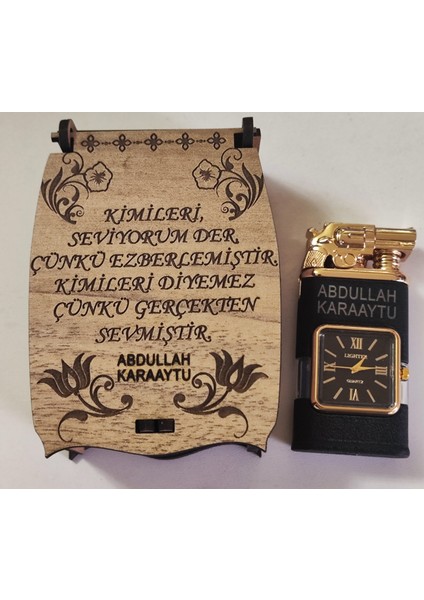 KİMİLERİ,
SEVİYORUM DER,
ÇÜNKÜ EZBERLEMİŞTİR.
KİMİLERİ DİYEMEZ
ÇÜNKÜ GERÇEKTEN
SEVMİŞTİR.
ABDULLAH
KARAAYTU
ABDULLAH
KARAAYTU
XII
LIGHTER
QUARTZ